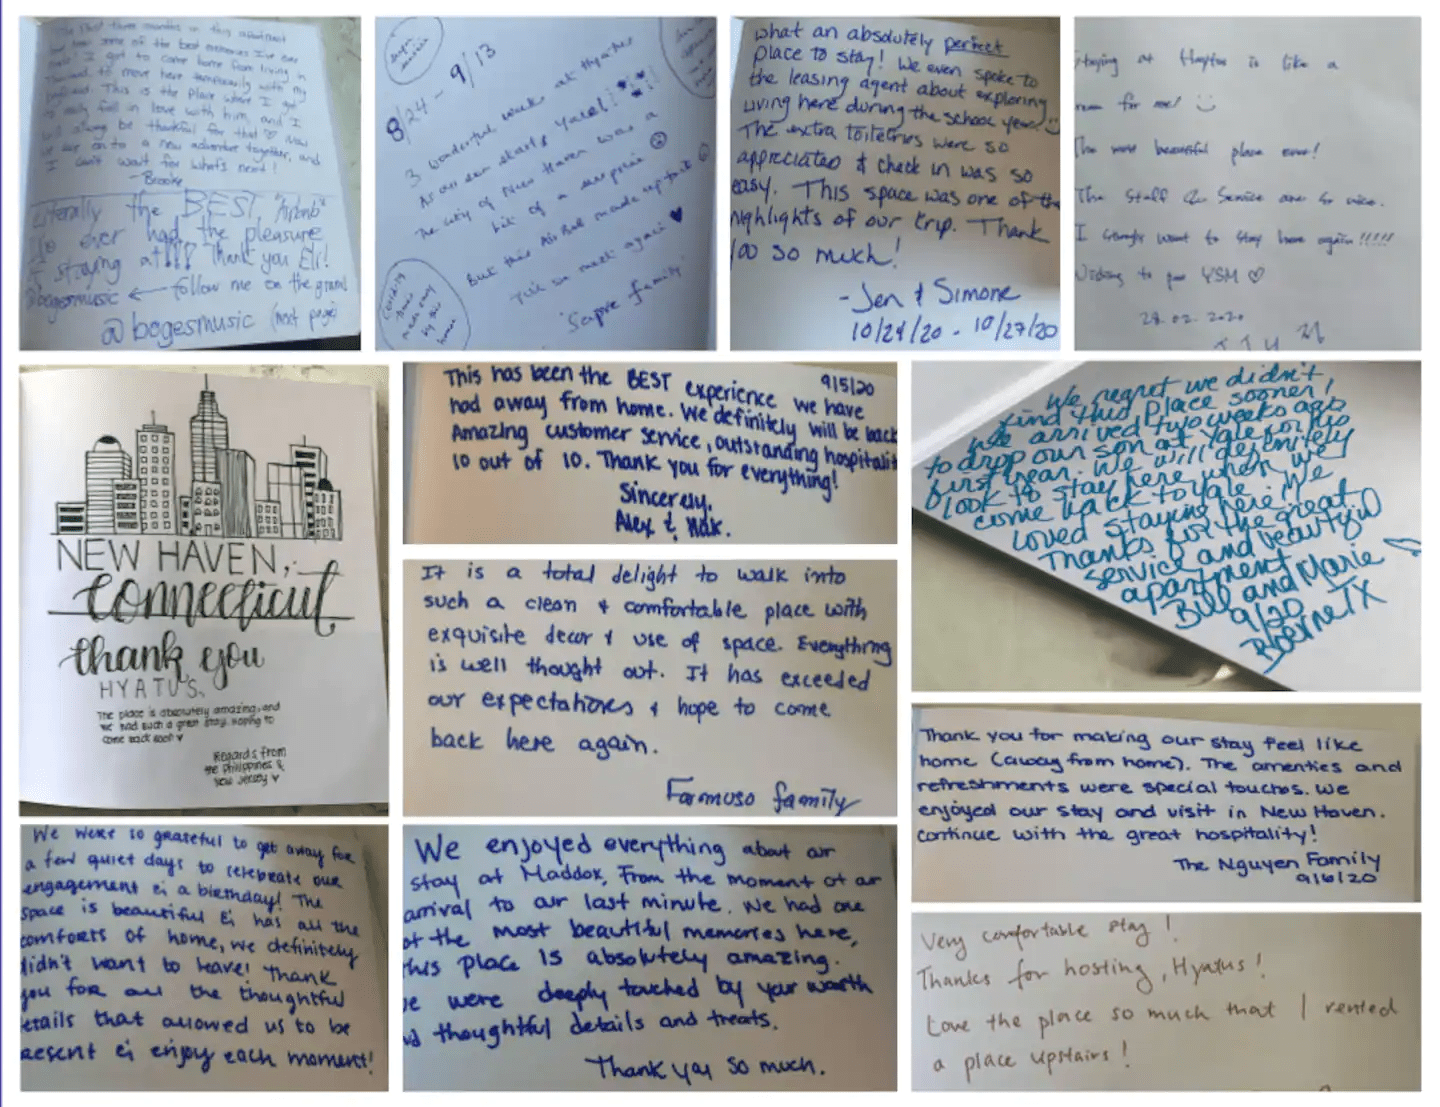 The past three months in this apartment
have been some of the best memories I've ever
made! I got to come home from living in
Thailand to move here temporarily with my
boyfriend. This is the place where I got
to really fall in love with him, and I
will always be thankful for that ♡ Now
we are on to a new adventure together, and
I can't wait for what's next!
- Brooke
Literally the BEST "Airbnb"
I've ever had the pleasure
of staying at!!! Thank you Eli!
@bogesmusic ← follow me on the gram!
@bogesmusic (next page)
8/24 - 9/13
3 wonderful weeks at Hyatus
As our son starts Yale!
The city of New Haven was a
bit of a surprise ☹
But this Air BnB made up for it ☺
Till we meet again ♥
Sapre family
what an absolutely perfect
place to stay! We even spoke to
the leasing agent about exploring
living here during the school year ☺
The extra toiletries were so
appreciated & check in was so
easy. This space was one of the
highlights of our trip. Thank
you so much!
- Jen & Simone
10/24/20 - 10/27/20
Staying at Hyatus is like a
for me! ☺
The most beautiful place ever!
The Staff & Service are so nice.
I want to stay here again!!!!!
to YSM ♡
28.02.2020
NEW HAVEN,
Connecticut
thank you
HYATUS.
The place is absolutely amazing, and
we had such a great stay. Hoping to
come back soon ♥
Regards from
the Philippines &
New Jersey ♥
This has been the BEST experience we have 9/5/20
had away from home. We definitely will be back
Amazing customer service, outstanding hospitalit
10 out of 10. Thank you for everything!
Sincerely,
Alex & Mak.
We regret we didn't
find this place sooner!
We arrived two weeks ago
to drop our son at Yale for his
first year. We will definitely
look to stay here when we
come back to Yale. We
loved staying here.
Thanks for the great
service and beautiful
apartment
Bill and Marie
9/20
Boerne TX
It is a total delight to walk into
such a clean & comfortable place with
exquisite decor & use of space. Everything
is well thought out. It has exceeded
our expectations & hope to come
back here again.
Formuso family
Thank you for making our stay feel like
home (away from home). The amenities and
refreshments were special touches. We
enjoyed our stay and visit in New Haven.
Continue with the great hospitality!
The Nguyen Family
9/6/20
We were so grateful to get away for
a few quiet days to celebrate our
engagement & a birthday! The
space is beautiful & has all the
comforts of home, we definitely
didn't want to leave! Thank
you for all the thoughtful
etails that allowed us to be
resent & enjoy each moment!
We enjoyed everything about our
stay at Maddox. From the moment of our
arrival to our last minute. We had one
of the most beautiful memories here,
this place is absolutely amazing.
we were deeply touched by your warth
nd thoughtful details and treats.
Thank you so much.
Very comfortable stay!
Thanks for hosting, Hyatus!
Love the place so much that I rented
a place upstairs!